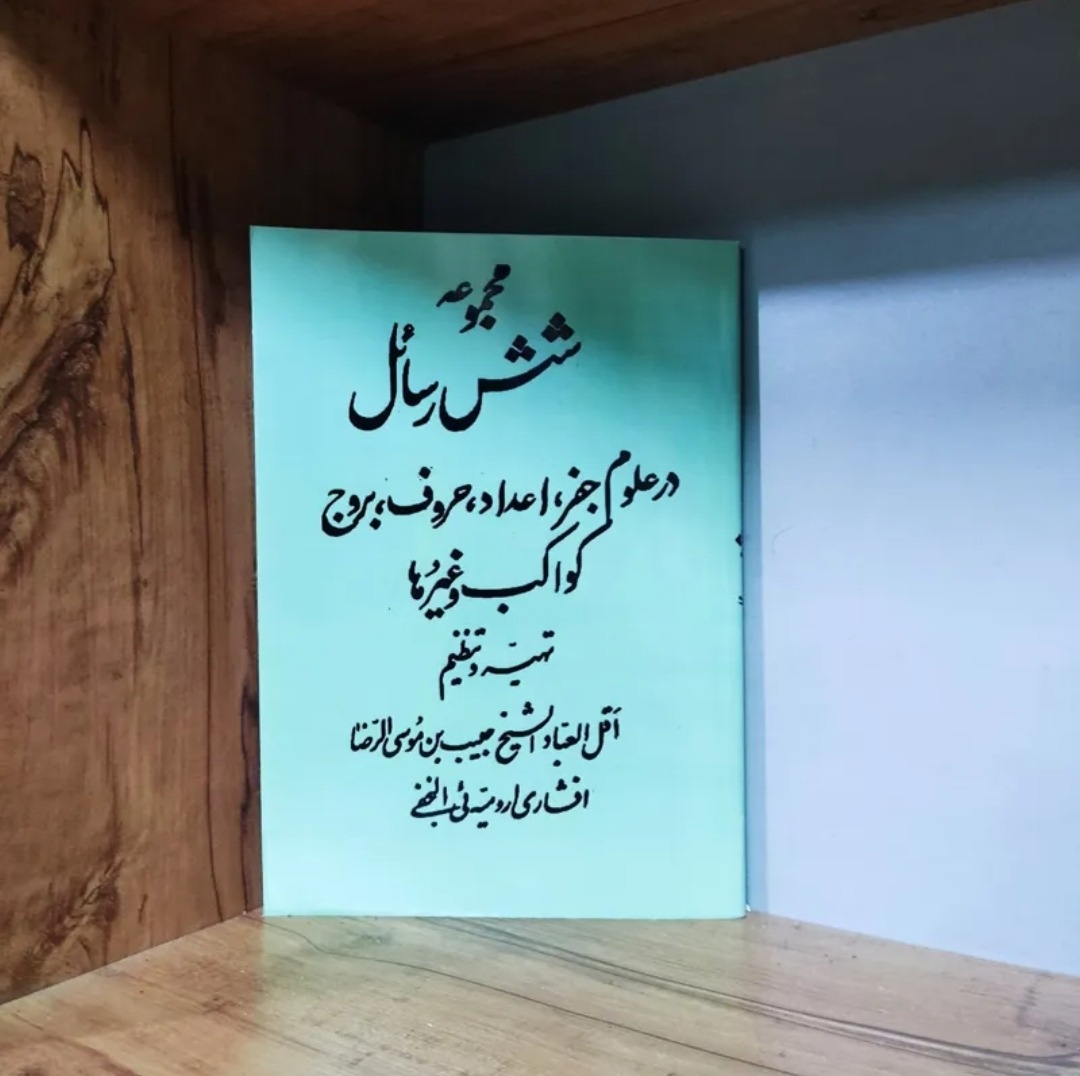 مجموعه
شش رسائل
در علوم جفر، اعداد، حروف، بروج
کواکب و غیرُها
تهیّه و تنظیم
اَقل العبّاد الشیخ حبیب بن مُوسی الرّضا
افشاری ارومیّه ئی النجفی